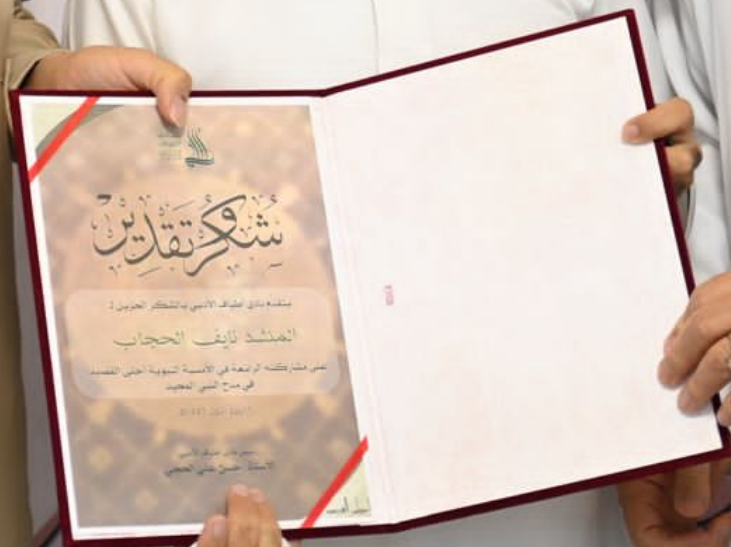 شكر وتقدير
يتقدم نادي أطياف الأدبي بالشكر الجزيل لـ
المنشد نايف الحجاب
على مشاركته الرائعة في الأمسية النبوية أحلى القصيد
في مدح النبي المجيد
الأستاذ حسن علي الحجي